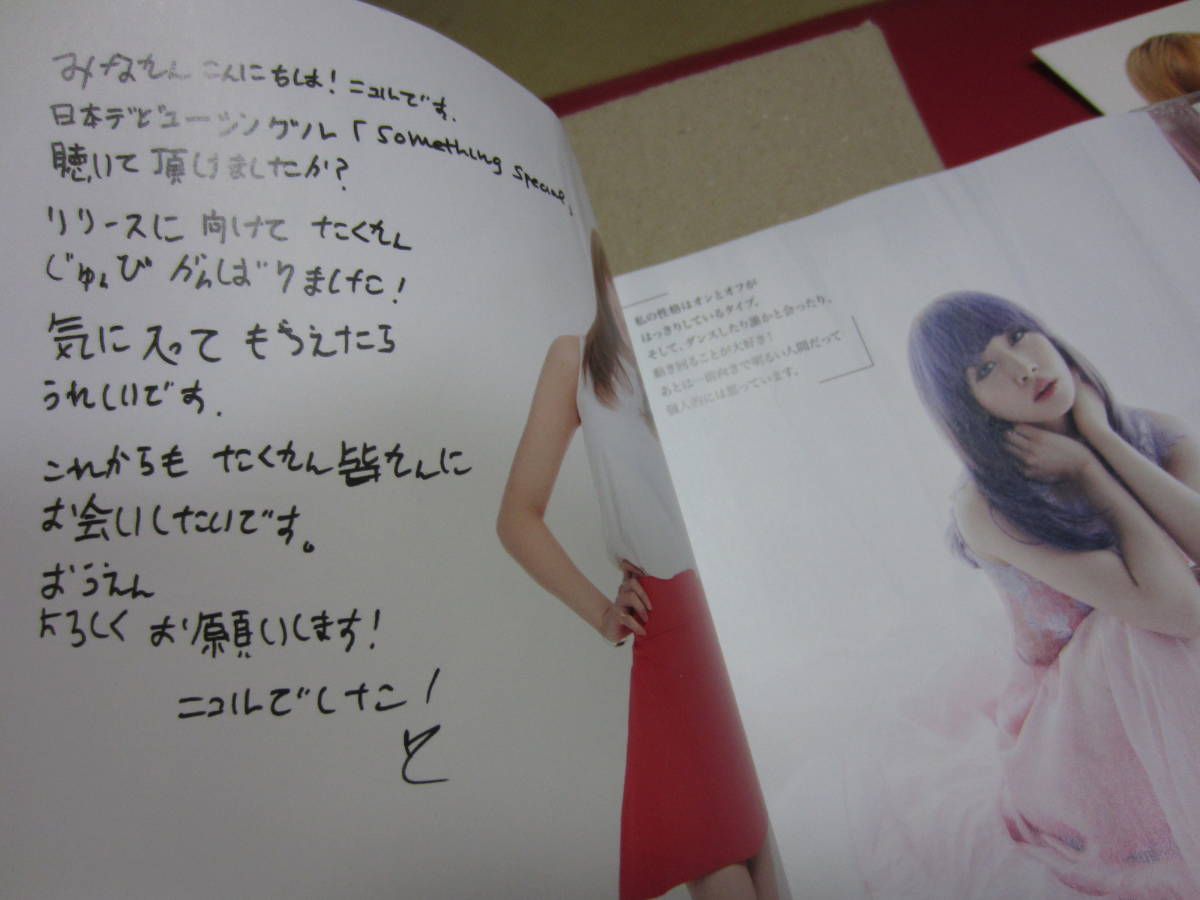 みなさん こんにちは! ニコルです.
日本デビューシングル「Something Special」
聴いて 頂けましたか?
リリースに 向けて たくさん
じゅんび がんばりました!
気に入って もらえたら
うれしいです.
これからも たくさん 皆さんに
お会いしたいです。
おうえん
よろしく お願いします!
ニコルでした!
私の性格はオンとオフが
はっきりしているタイプ。
そして、ダンスしたり誰かと会ったり、
動き回ることが大好き!
あとは一番前向きで明るい人間だって
個人的には思っています。